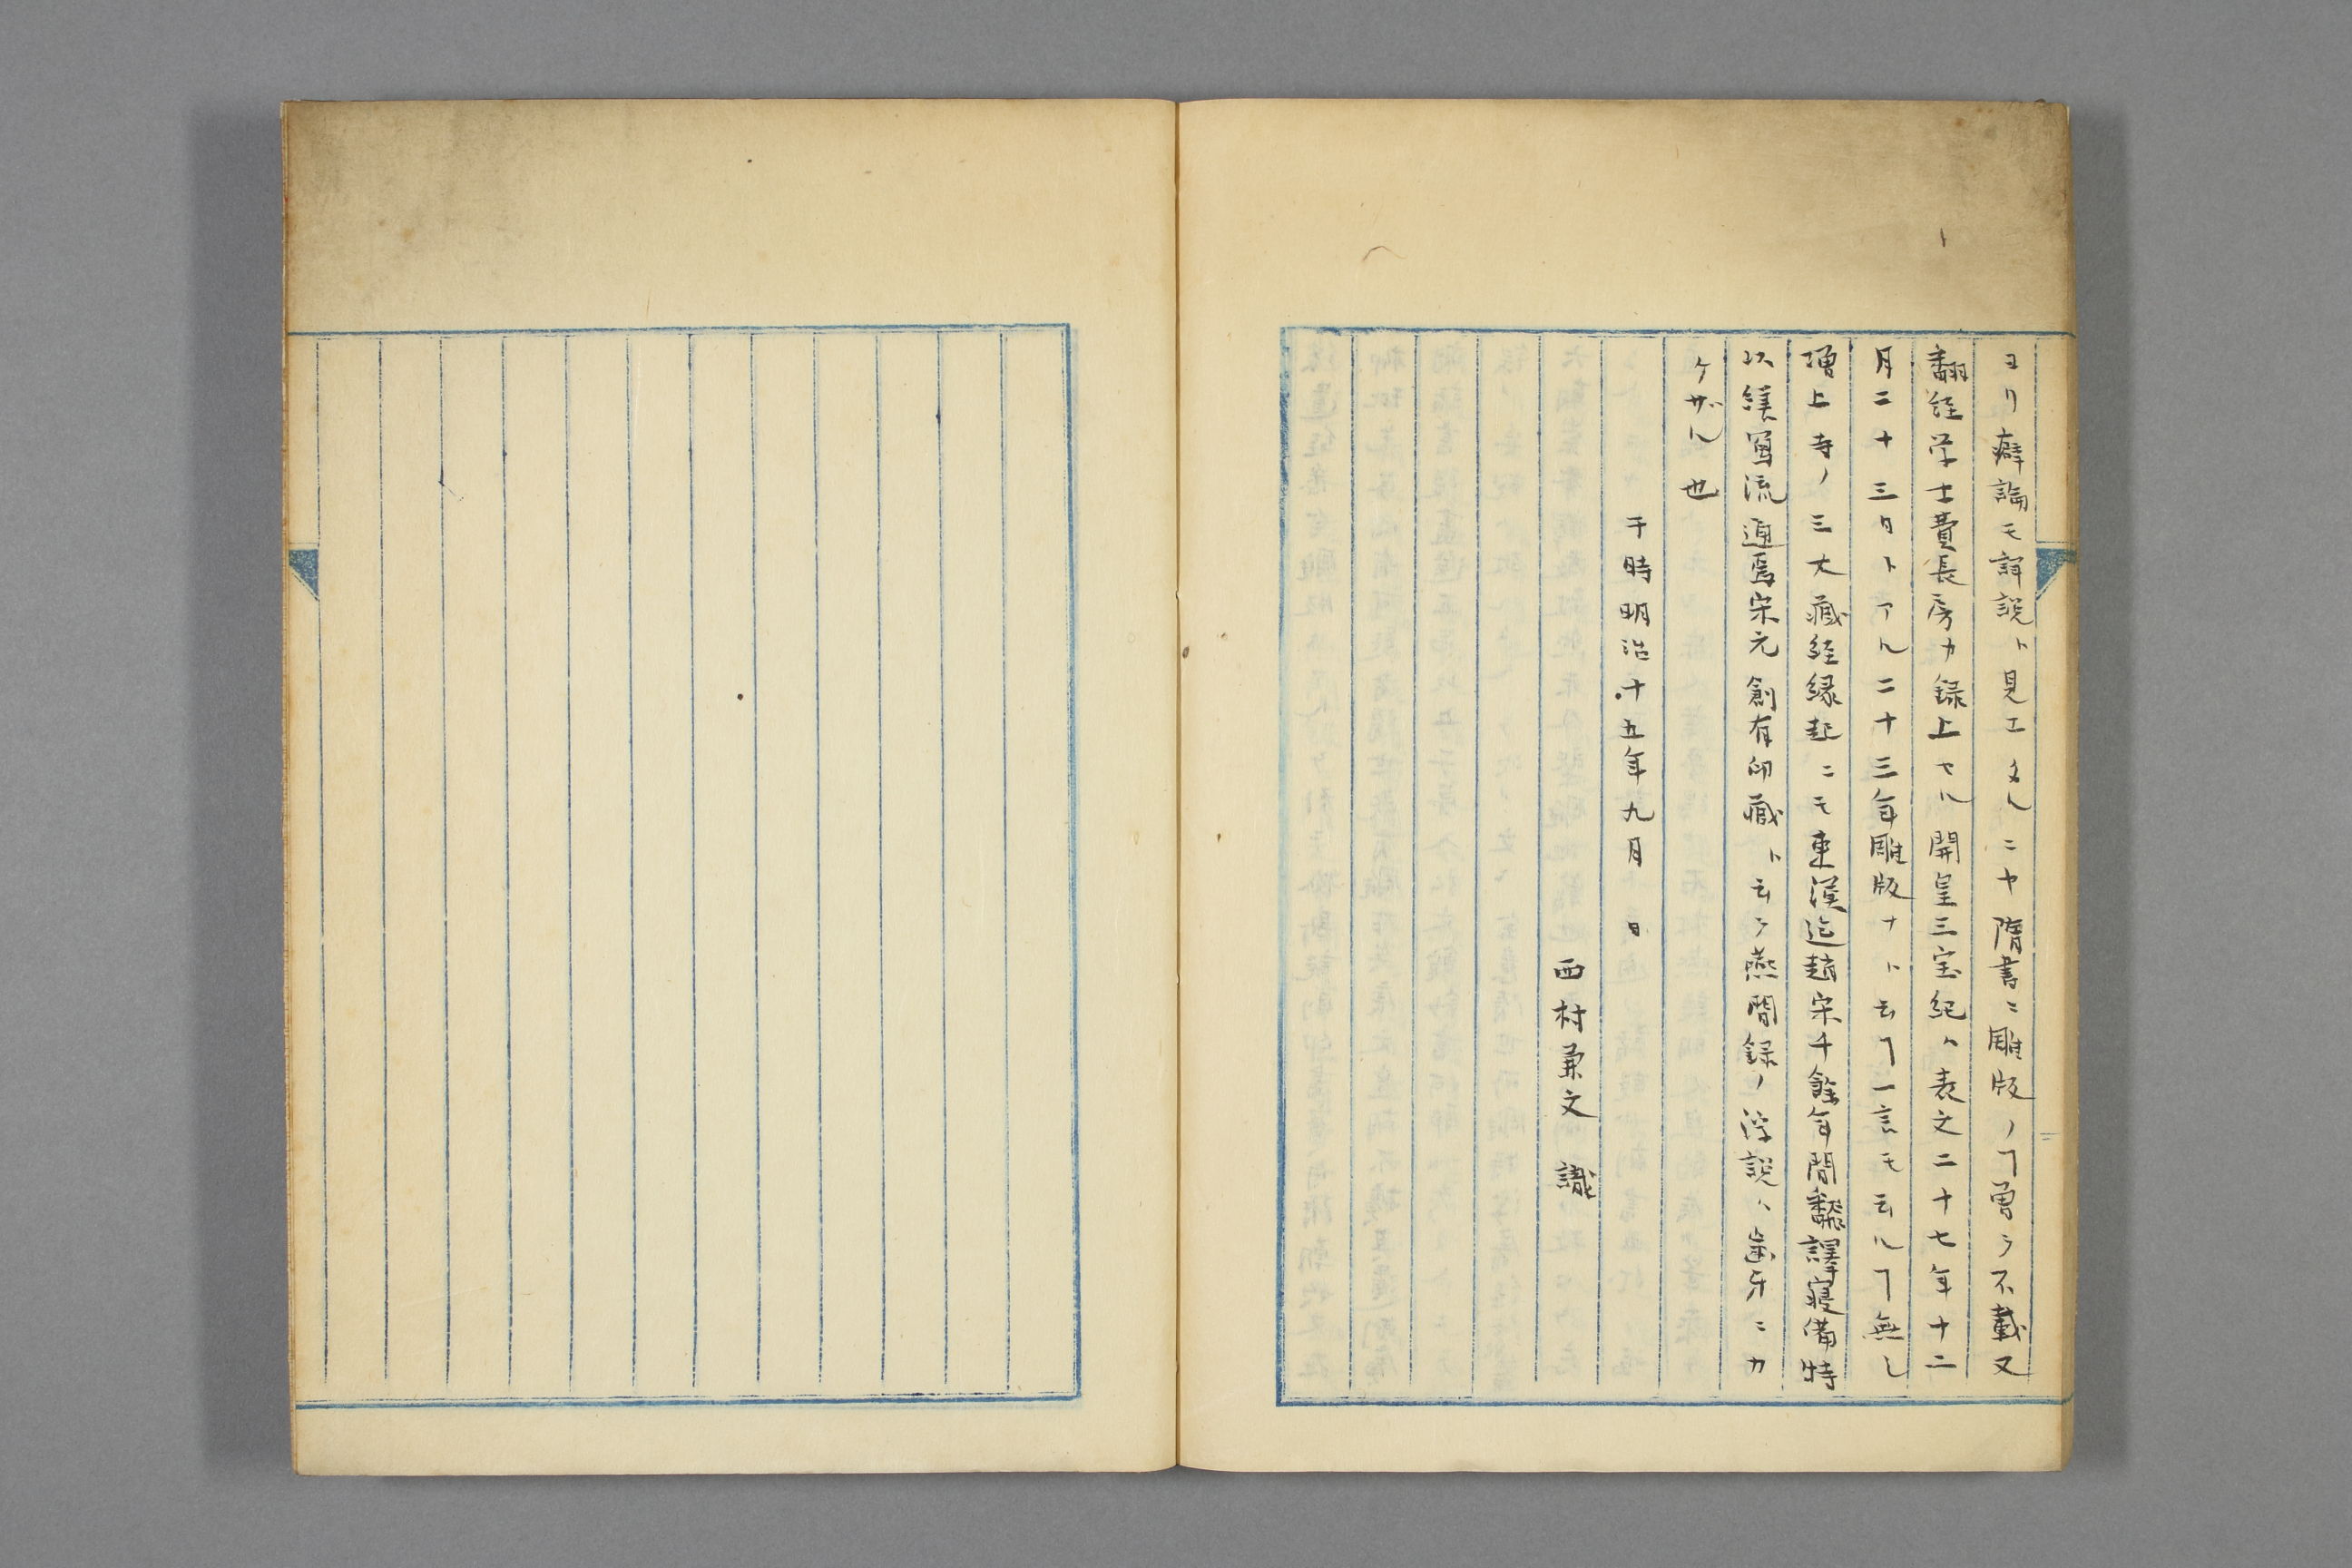 ヨリ癖論モ詳説ト見エタルニヤ隋書ニ雕版ノヿ曽ラ不載又
翻経学士費長房カ録上セル開皇三宝紀ハ表文二十七年十二
月二十三日トアル二十三年雕版ナトヽ云ヿ一言モ云ルヿ無シ
増上寺ノ三大蔵経縁起ニモ東漢迄趙宋千餘年間翻譯寝備特
以繕寫流通焉宋元創有印藏ト云フ燕間録ノ浮説ハ歯牙ニカ
ケザル也
于時明治十五年九月 日
西村兼文 識